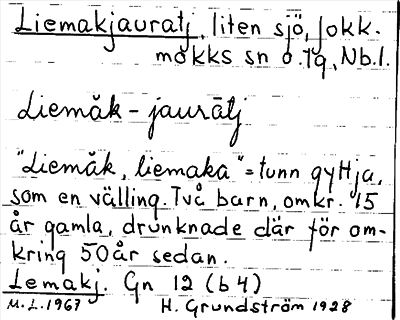 Liemakjauratj, liten sjö, Jokk-
mokks sn o. Tg, Nb.l.
Liemăk-jaurātj
"Liemăk, liemaka" = tunn gyttja,
som en välling. Två barn, omkr. 15
år gamla, drunknade där för om-
kring 50 år sedan.
Lemakj. Gn 12 (b4)
M.L. 1967 H. Grundström 1928